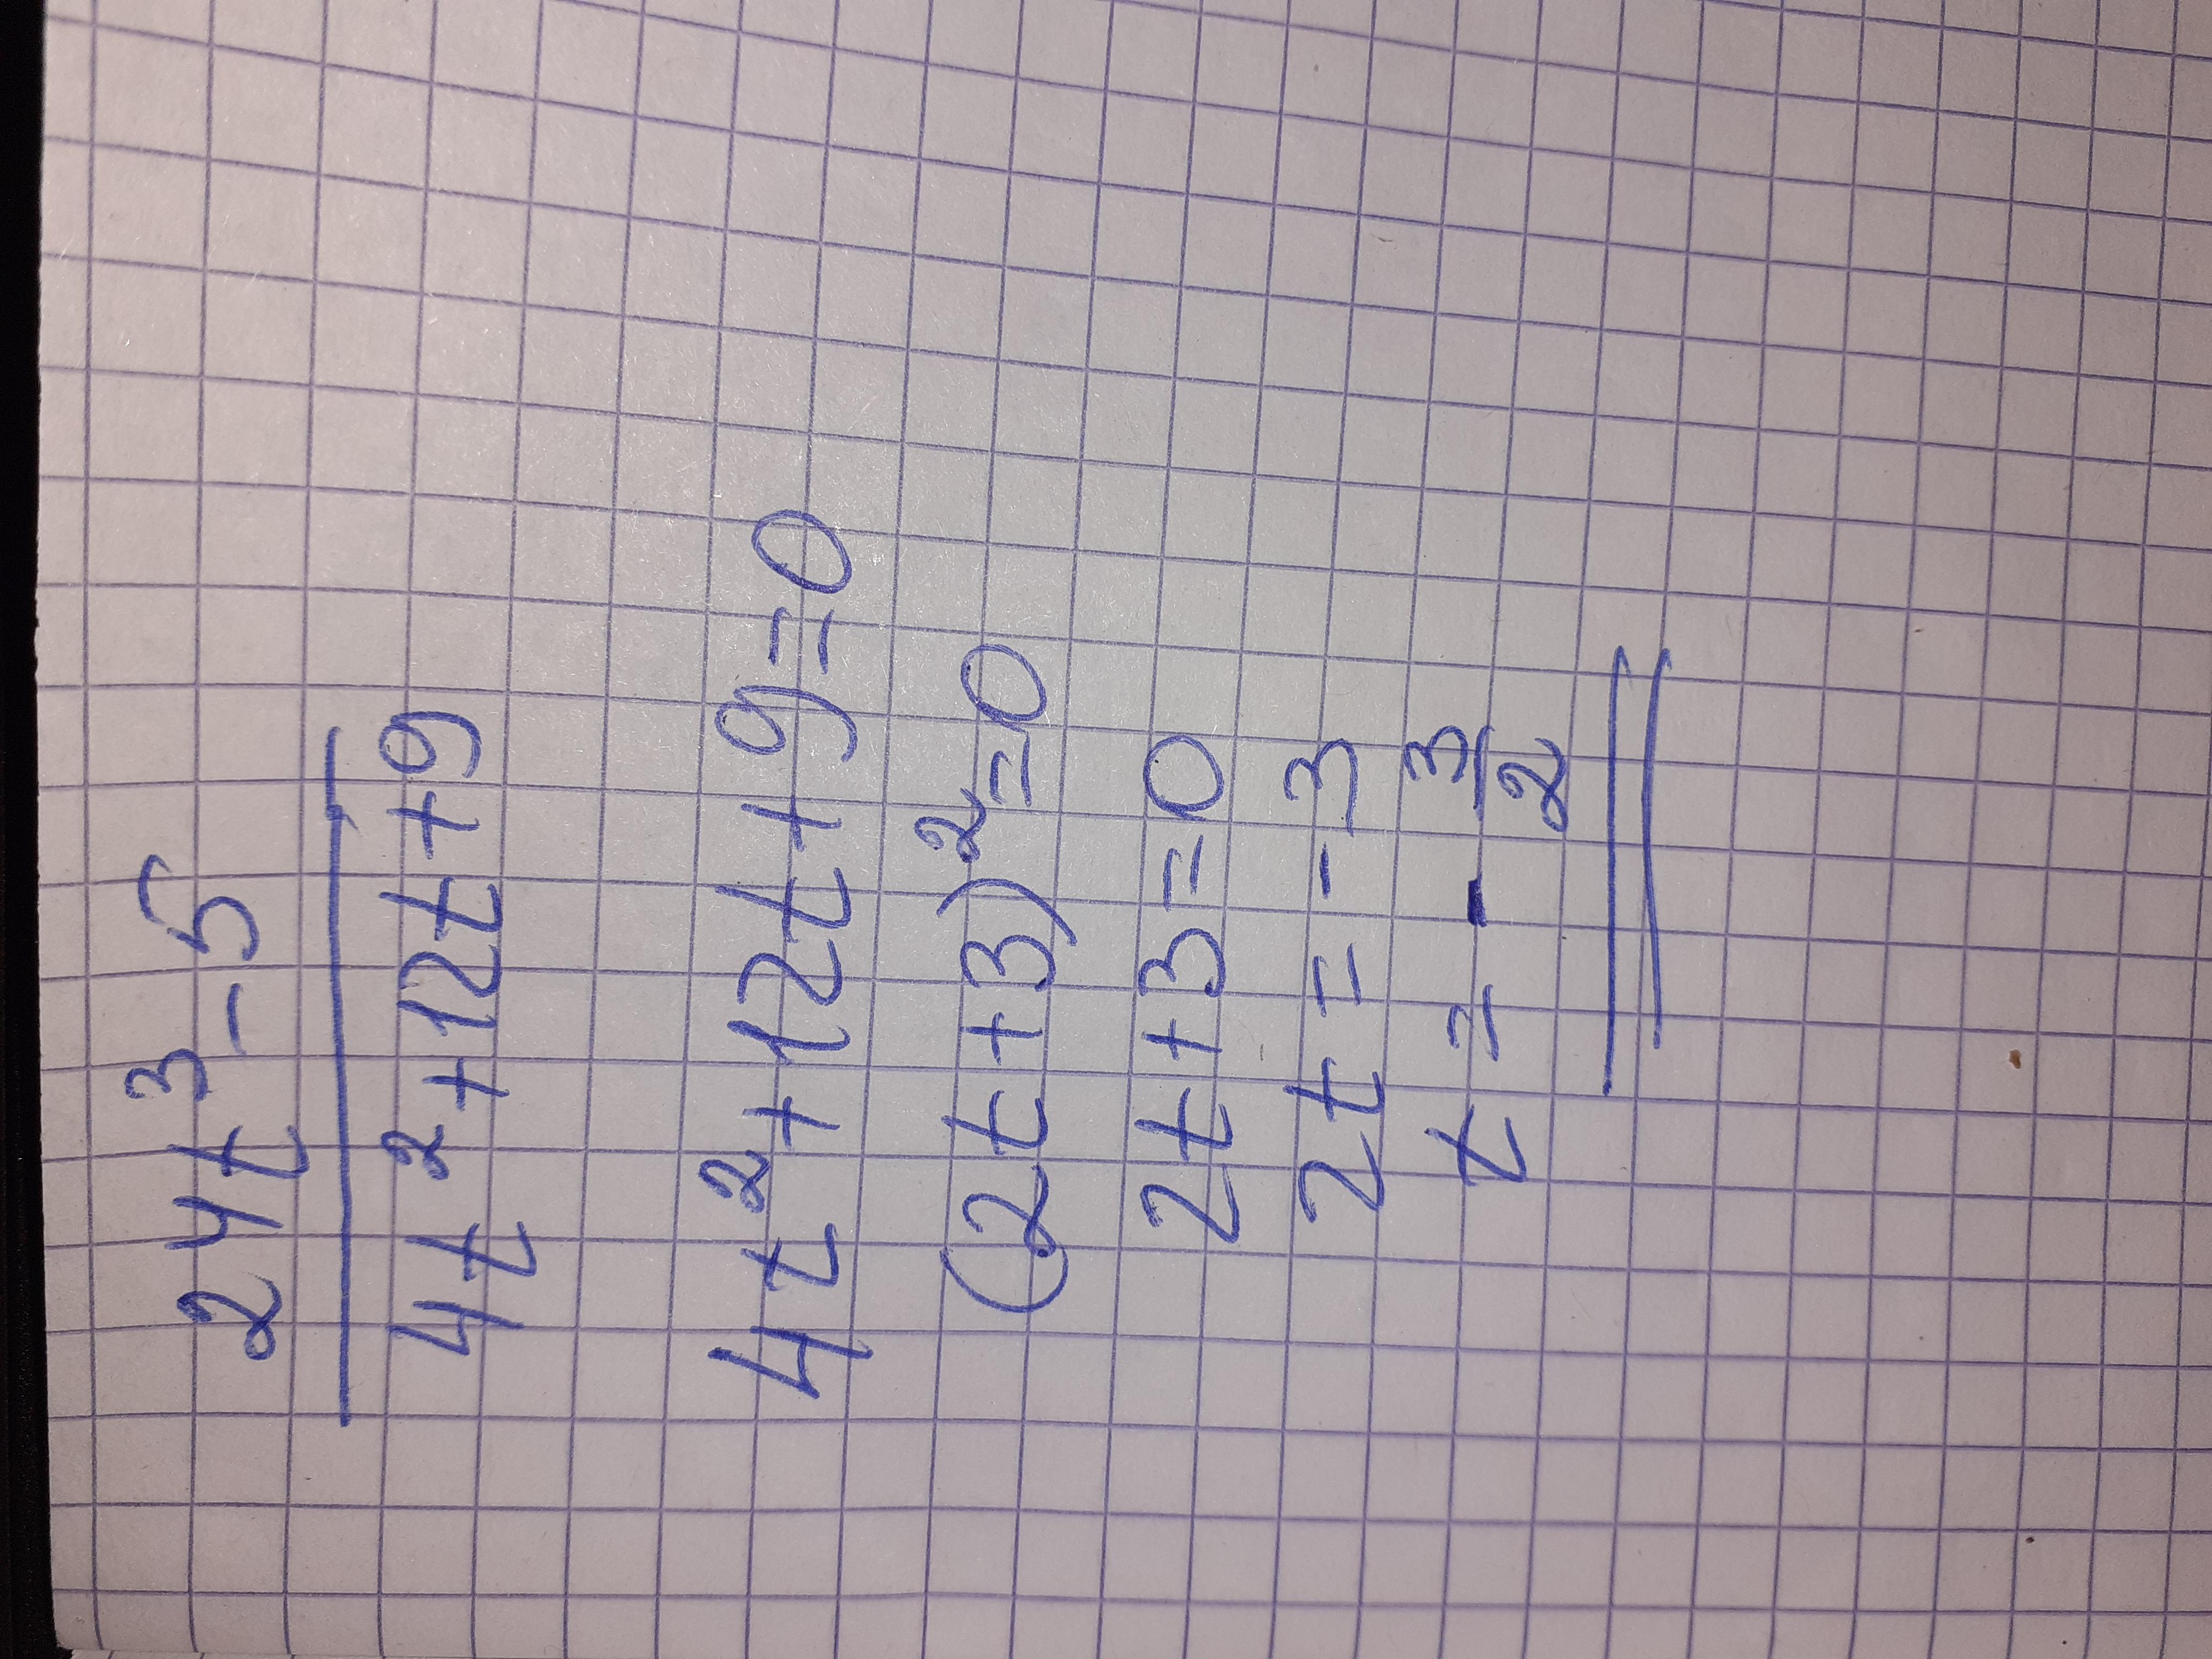 24t³-5
4t²+12t+9
4t²+12t+9=0
(2t+3)²=0
2t+3=0
2t=-3
t=-3/2